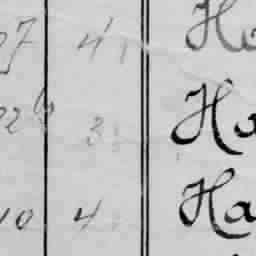 27 4 Ho
22 3 Ho
10 4 Ha